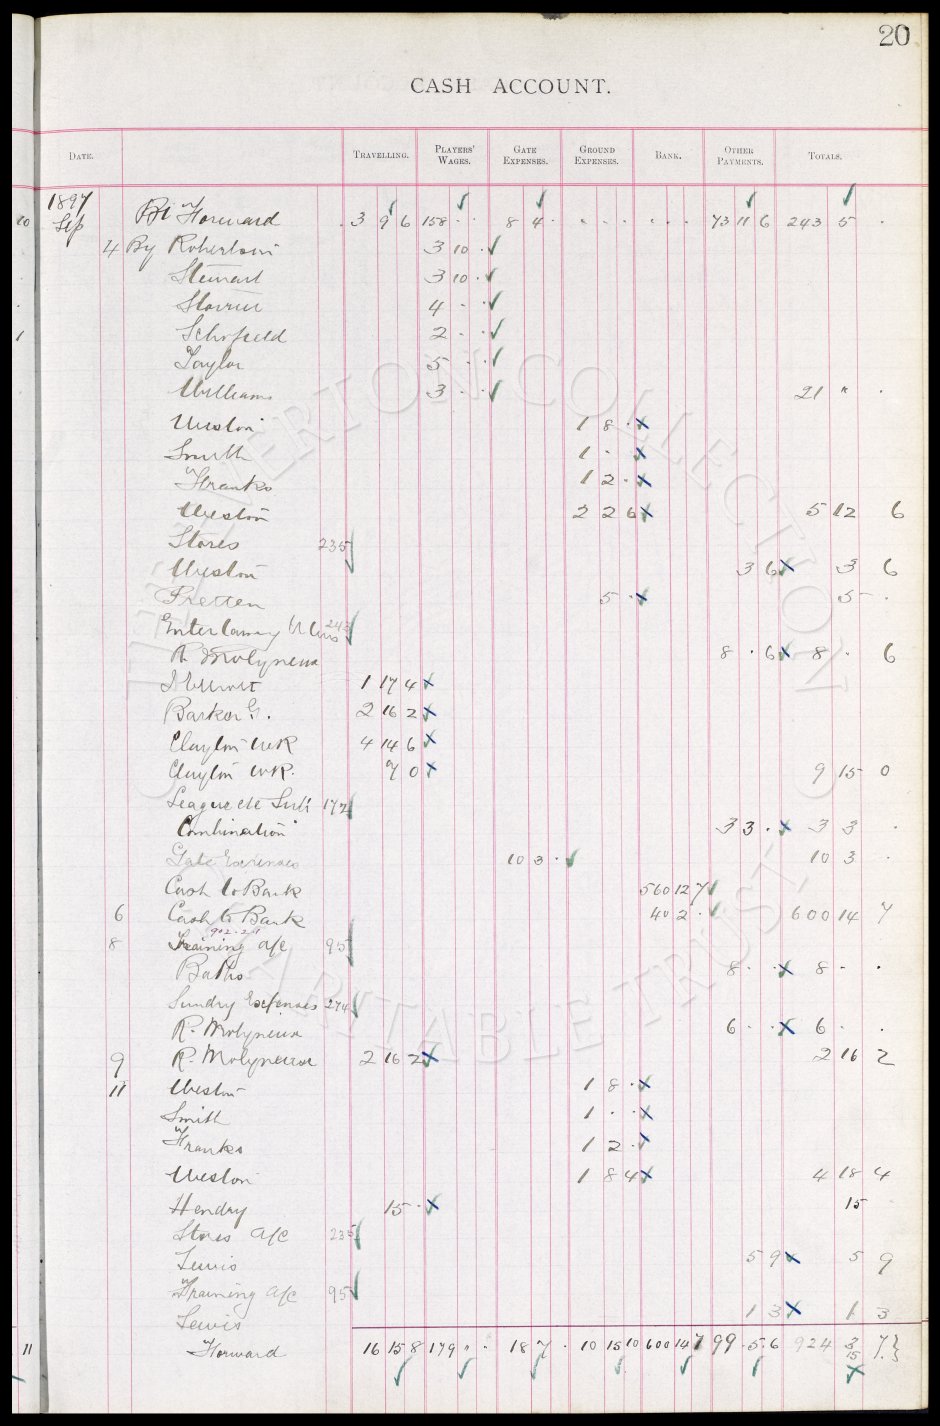 20
CASH ACCOUNT.
DATE. TRAVELLING. PLAYERS' WAGES. GATE EXPENSES. GROUND EXPENSES. BANK. OTHER PAYMENTS. TOTALS.
1897
10 Sep Bt Forward 3 9 6 158 . . 8 4 . . . . . . . 73 11 6 243 5 .
4 By Robertson 3 10 .
Stewart 3 10 .
Storrier 4 . .
1 Schofield 2 . .
Taylor 5 . .
Williams 3 . . 21 " .
Weston 1 8 .
Smith 1 .
Franks 1 2 .
Weston 2 2 6 5 12 6
Stores 235
Weston 3 6 3 6
Fretten 5 . 5 .
243
R. Molyneux 8 . 6 8 . 6
1 17 4
Barker G. 2 16 2
Clayton WR 4 14 6
Clayton WR. 7 0 9 15 0
League etc Subs 172
Combination 3 3 . 3 3 .
Gate Expenses 10 3 . 10 3 .
Cash to Bank 560 12 7
6 Cash to Bank 40 2 . 600 14 7
902.2.1
8 Training a/c 95
Baths 8 . . 8 . .
Sundry Expenses 274
R. Molyneux 6 . . 6 . .
9 R. Molyneux 2 16 2 2 16 2
11 Weston 1 8 .
Smith 1 . .
Franks 1 2 .
Weston 1 8 4 4 18 4
Hendry 15 . 15
Stores a/c 235
Lewis 5 9 5 9
Training a/c 95
Lewis 1 3 1 3
11 Forward 16 15 8 179 " . 18 7 . 10 15 10 600 14 7 99 . 5 . 6 924 3 7
15 .
THE EVERTON COLLECTION CHARITABLE TRUST